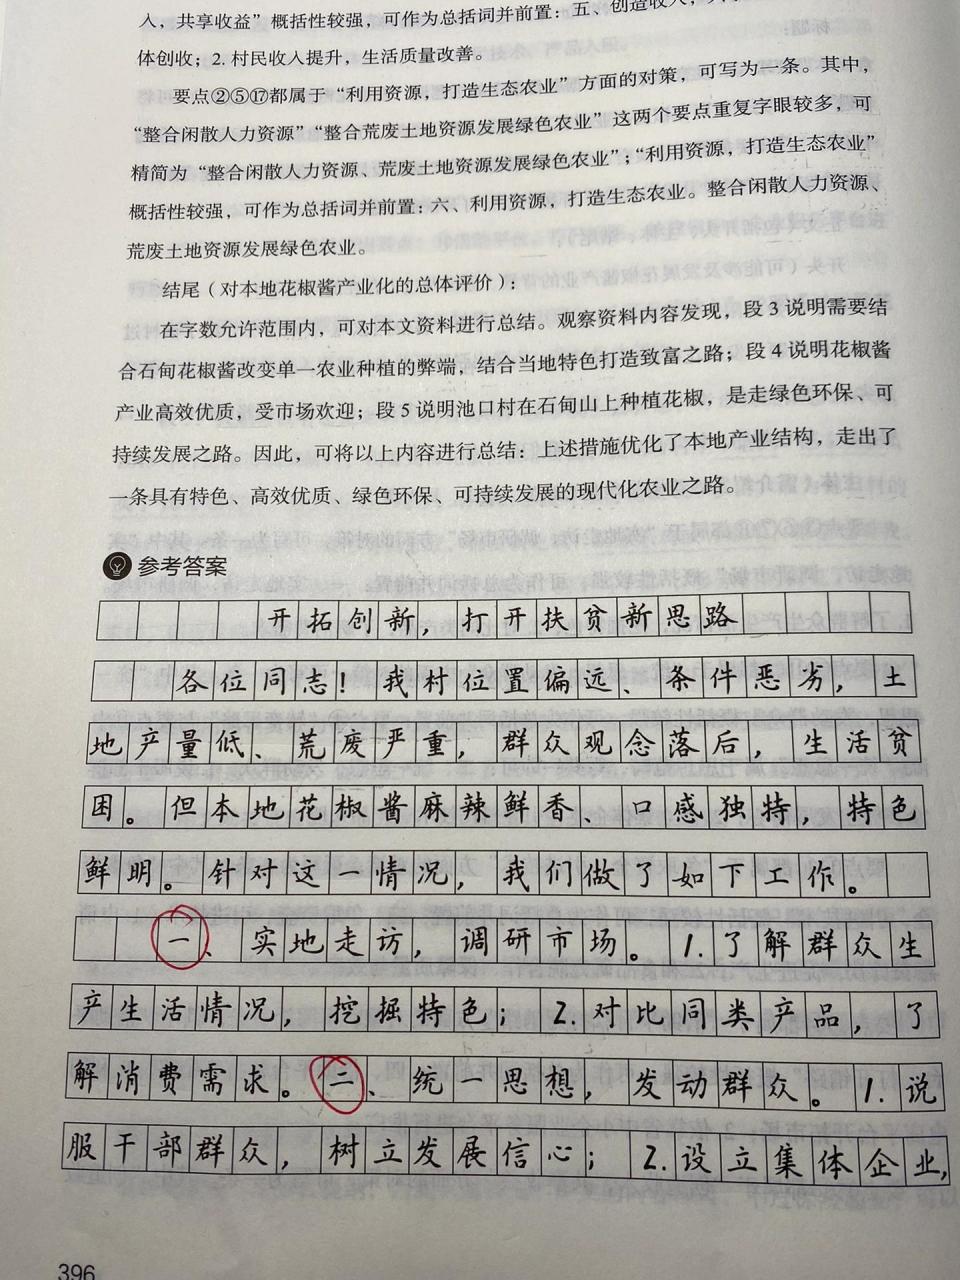 入，共享收益”概括性较强，可作为总括词并前置：五、创造收入，
体创收；2. 村民收入提升，生活质量改善。
要点②⑤⑰都属于“利用资源，打造生态农业”方面的对策，可写为一条。其中，
“整合闲散人力资源”“整合荒废土地资源发展绿色农业”这两个要点重复字眼较多，可
精简为“整合闲散人力资源、荒废土地资源发展绿色农业”；“利用资源，打造生态农业”
概括性较强，可作为总括词并前置：六、利用资源，打造生态农业。整合闲散人力资源、
荒废土地资源发展绿色农业。
结尾（对本地花椒酱产业化的总体评价）：
在字数允许范围内，可对本文资料进行总结。观察资料内容发现，段 3 说明需要结
合石甸花椒酱改变单一农业种植的弊端，结合当地特色打造致富之路；段 4 说明花椒酱
产业高效优质，受市场欢迎；段 5 说明池口村在石甸山上种植花椒，是走绿色环保、可
持续发展之路。因此，可将以上内容进行总结：上述措施优化了本地产业结构，走出了
一条具有特色、高效优质、绿色环保、可持续发展的现代化农业之路。
参考答案
开拓创新，打开扶贫新思路
各位同志！我村位置偏远、条件恶劣，土
地产量低、荒废严重，群众观念落后，生活贫
困。但本地花椒酱麻辣鲜香、口感独特，特色
鲜明。针对这一情况，我们做了如下工作。
一、实地走访，调研市场。1.了解群众生
产生活情况，挖掘特色；2.对比同类产品，了
解消费需求。二、统一思想，发动群众。1.说
服干部群众，树立发展信心；2.设立集体企业，
396